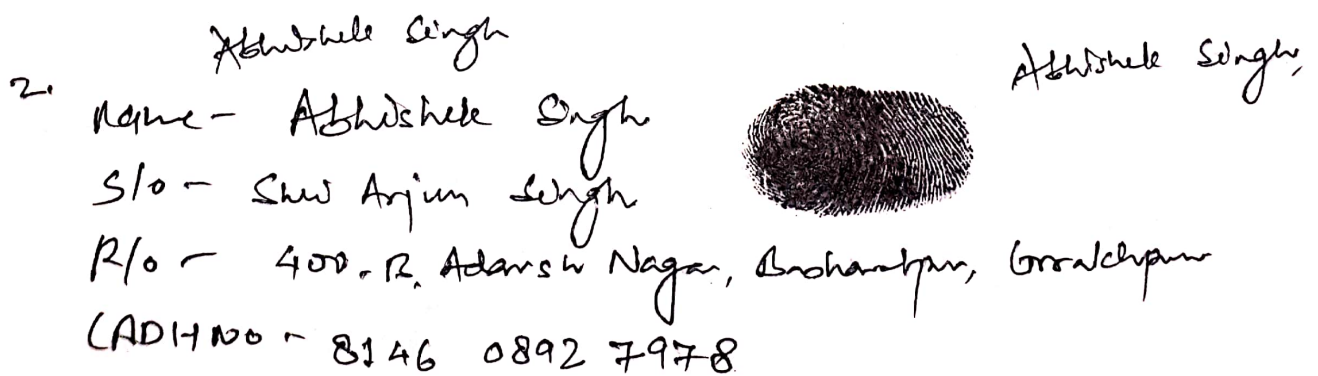 Abhishek Singh
Abhishek Singh,
2.
Name - Abhishek Singh
S/o - Shri Arjun Singh
R/o - 400. R, Adarsh Nagar, Basharatpur, Gorakhpur
(ADH NO - 8146 0892 7978